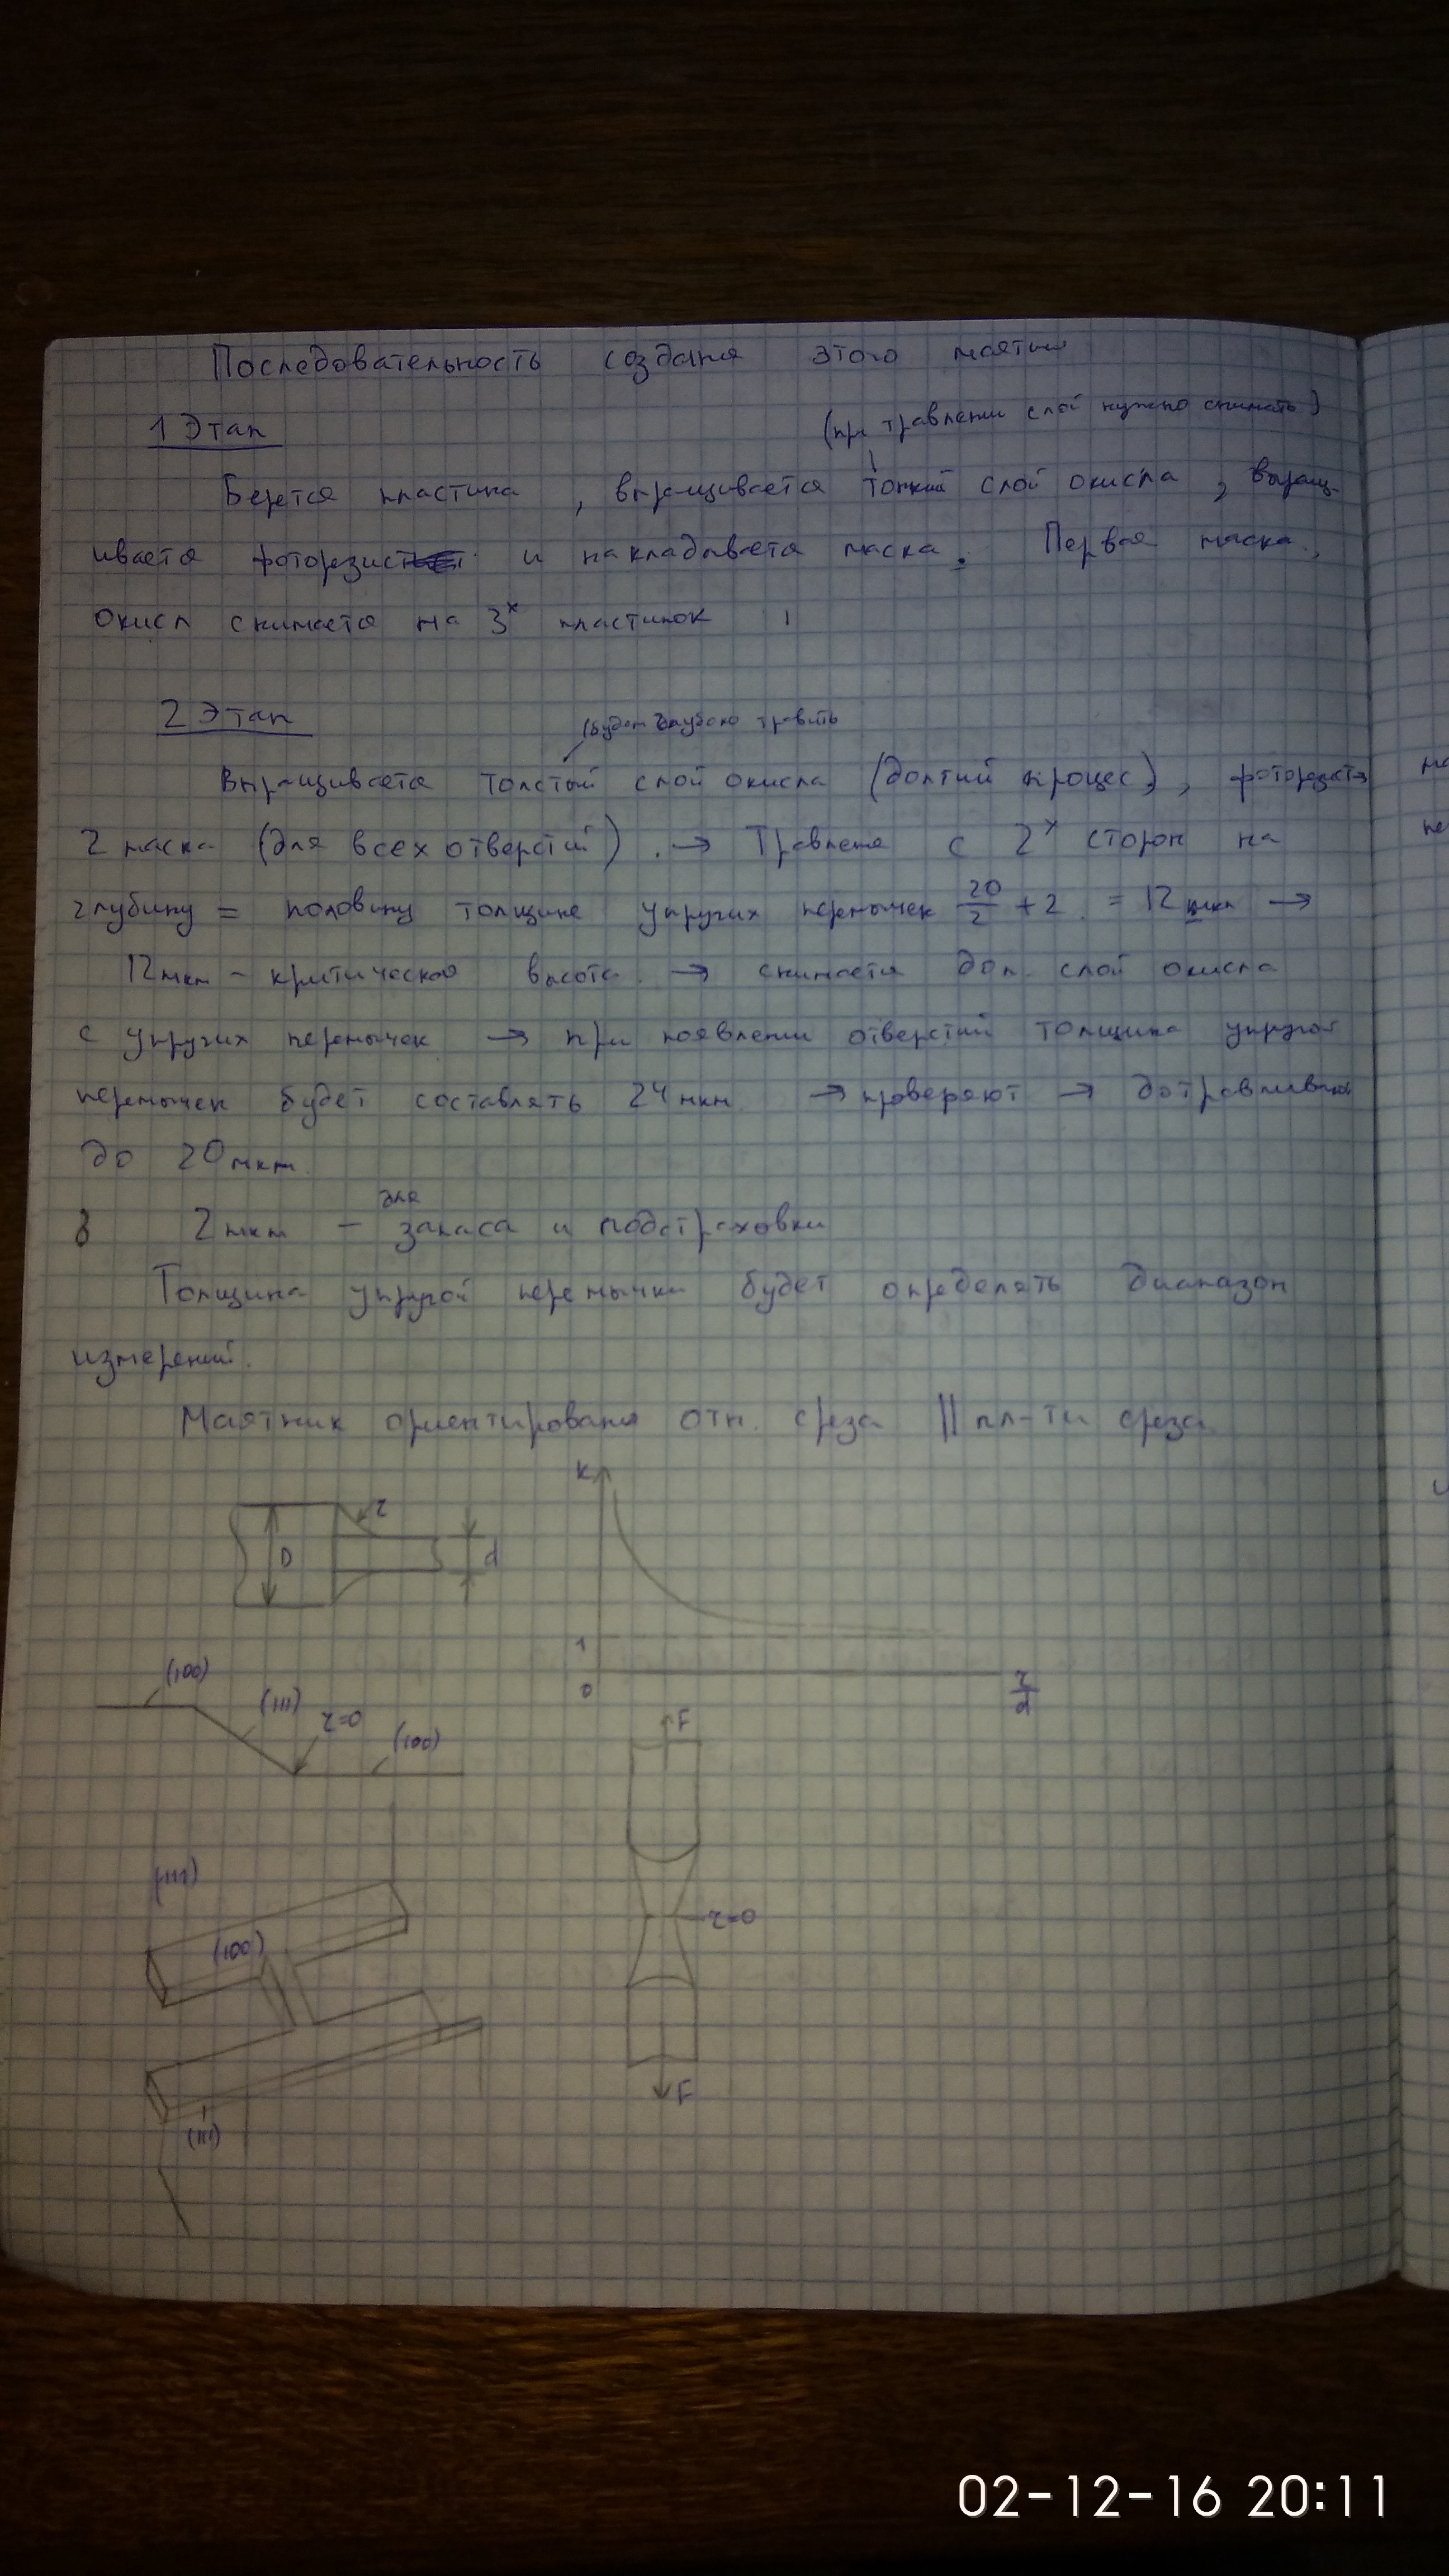 Последовательность создания этого маятника
1 Этап
(при травлении слой нужно снимать)
Берется пластина, выращивается тонкий слой окисла, выращ-
ивается фоторезист и накладывается маска. Первая маска,
окисл снимается на 3х пластинок
2 Этап
(будем глубоко травить
Выращивается толстый слой окисла (долгий процес), фоторезист
2 маска (для всех отверстий). → Травление с 2х сторон на
глубину = половину толщине упругих перемычек 20/2 + 2 = 12 мкм →
12мкм - критическая высота → снимается доп. слой окисла
с упругих перемычек → при появлении отверстий толщина упругой
перемычек будет составлять 24 мкм → проверяют → дотравливают
до 20 мкм.
для
2 мкм - запаса и подстраховки
Толщина упругой перемычки будет определять диапазон
измерений.
Маятник ориентирования отн. среза || пл-ти среза
K
r
D
d
1
0
r/d
(100)
(111)
r=0
(100)
F
(111)
(100)
r=0
F
(111)
02-12-16 20:11